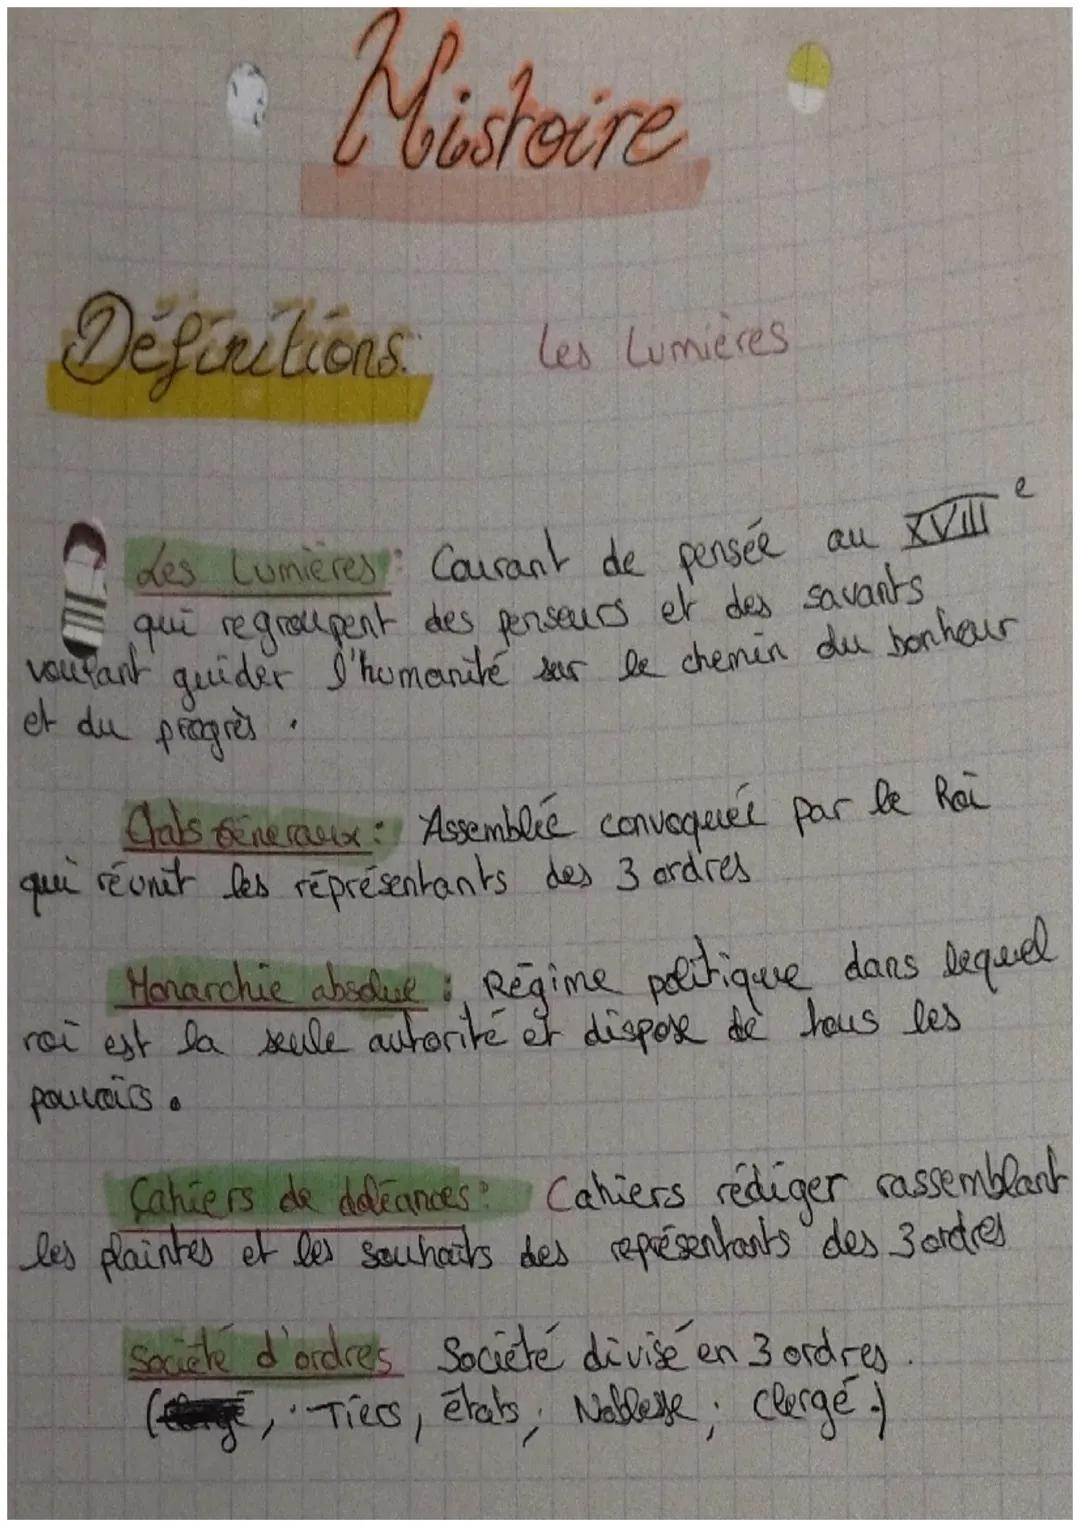 Histoire
Définitions: Les Lumières
Les Lumières: Courant de pensée au XVIII e
qui regroupent des penseurs et des savants
voulant guider l'humanité sur le chemin du bonheur
et du progrès.
États Géneraux: Assemblée convoquée par le Roi
qui réunit les réprésentants des 3 ordres
Monarchie absolue: Régime politique dans lequel
roi est la seule autorité et dispose de tous les
pouvoirs.
Cahiers de doléances: Cahiers rédiger rassemblant
les plaintes et les souhaits des représentants des 3 ordres
Société d'ordres Société divisé en 3 ordres.
(Tiers, états; Noblesse; clergé.)